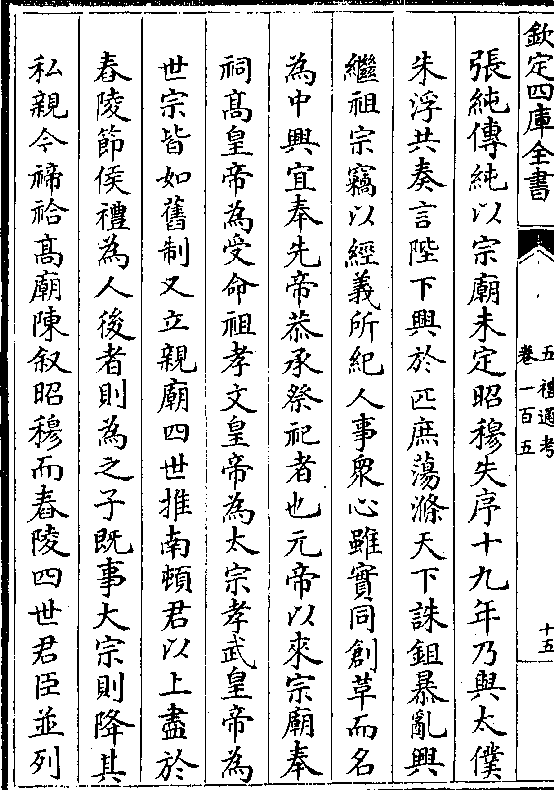 欽定四庫全書
五禮通考
卷一百五
十五
張純傳純以宗廟未定昭穆失序十九年乃與太僕
朱浮共奏言陛下興於匹庶蕩滌天下誅鉏暴亂興
繼祖宗竊以經義所紀人事衆心雖實同創草而名
為中興宜奉先帝恭承祭祀者也元帝以來宗廟奉
祠髙皇帝為受命祖孝文皇帝為太宗孝武皇帝為
世宗皆如舊制又立親廟四世推南頓君以上盡於
舂陵節侯禮為人後者則為之子既事大宗則降其
私親今禘祫髙廟陳叙昭穆而舂陵四世君臣並列